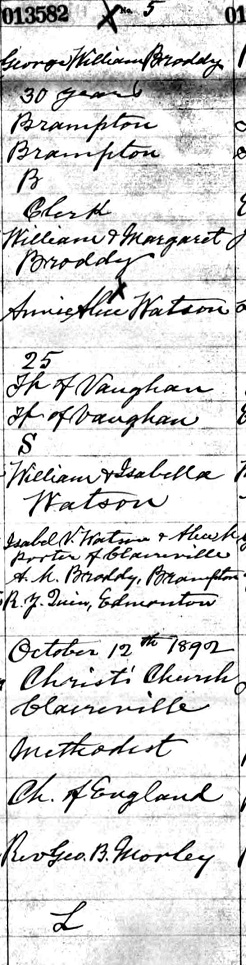 013582 X 5
George William Broddy
30 years
Brampton
Brampton
B
Clerk
William & Margaret
Broddy
Annie Alice Watson
25
Tp of Vaughan
Tp of Vaughan
S
William & Isabella
Watson
Isabel V. Watson &
Porter of Claireville
A. M. Broddy, Brampton
R. J. Edmonton
October 12th 1892
Christ's Church
Claireville
Methodist
Ch. of England
Rev Geo. B. Morley
L